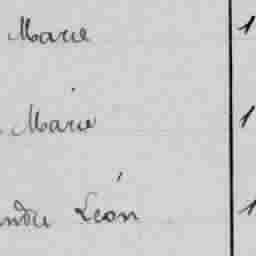 Marie 1
Marie 1
Léon 1